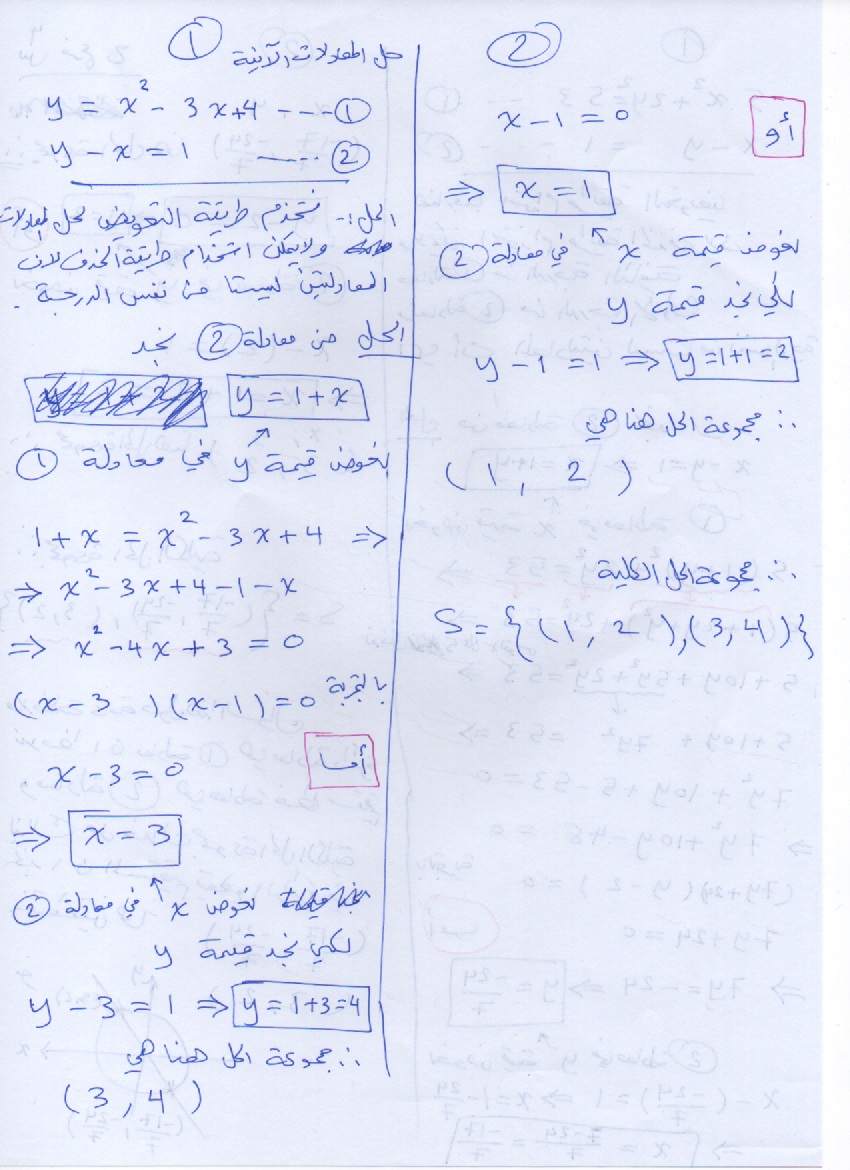 ①
حل المعادلات الآتية
y = x² - 3x+4 --- ①
y - x = 1 ----- ②
الحل :- نستخدم طريقة التعويض لحل المعادلات
ولا يمكن استخدام طريقة الحذف لان
المعادلتين ليستا من نفس الدرجة .
الحل من معادلة ② نجد
y = 1 + x
نعوض قيمة y في معادلة ①
1 + x = x² - 3x + 4 ⇒
⇒ x² - 3x + 4 - 1 - x
⇒ x² - 4x + 3 = 0
(x - 3 ) (x - 1) = 0 بالتجربة
أما
x - 3 = 0
⇒ x = 3
نعوض x في معادلة ②
لكي نجد قيمة y
y - 3 = 1 ⇒ y = 1+3 = 4
∴ مجموعة الحل هنا هي
( 3 , 4 )
②
أو
x - 1 = 0
⇒ x = 1
نعوض قيمة x في معادلة ②
لكي نجد قيمة y
y - 1 = 1 ⇒ y = 1+1 = 2
∴ مجموعة الحل هنا هي
( 1 , 2 )
∴ مجموعة الحل الكلية
S = { (1 , 2 ) , (3 , 4 ) }